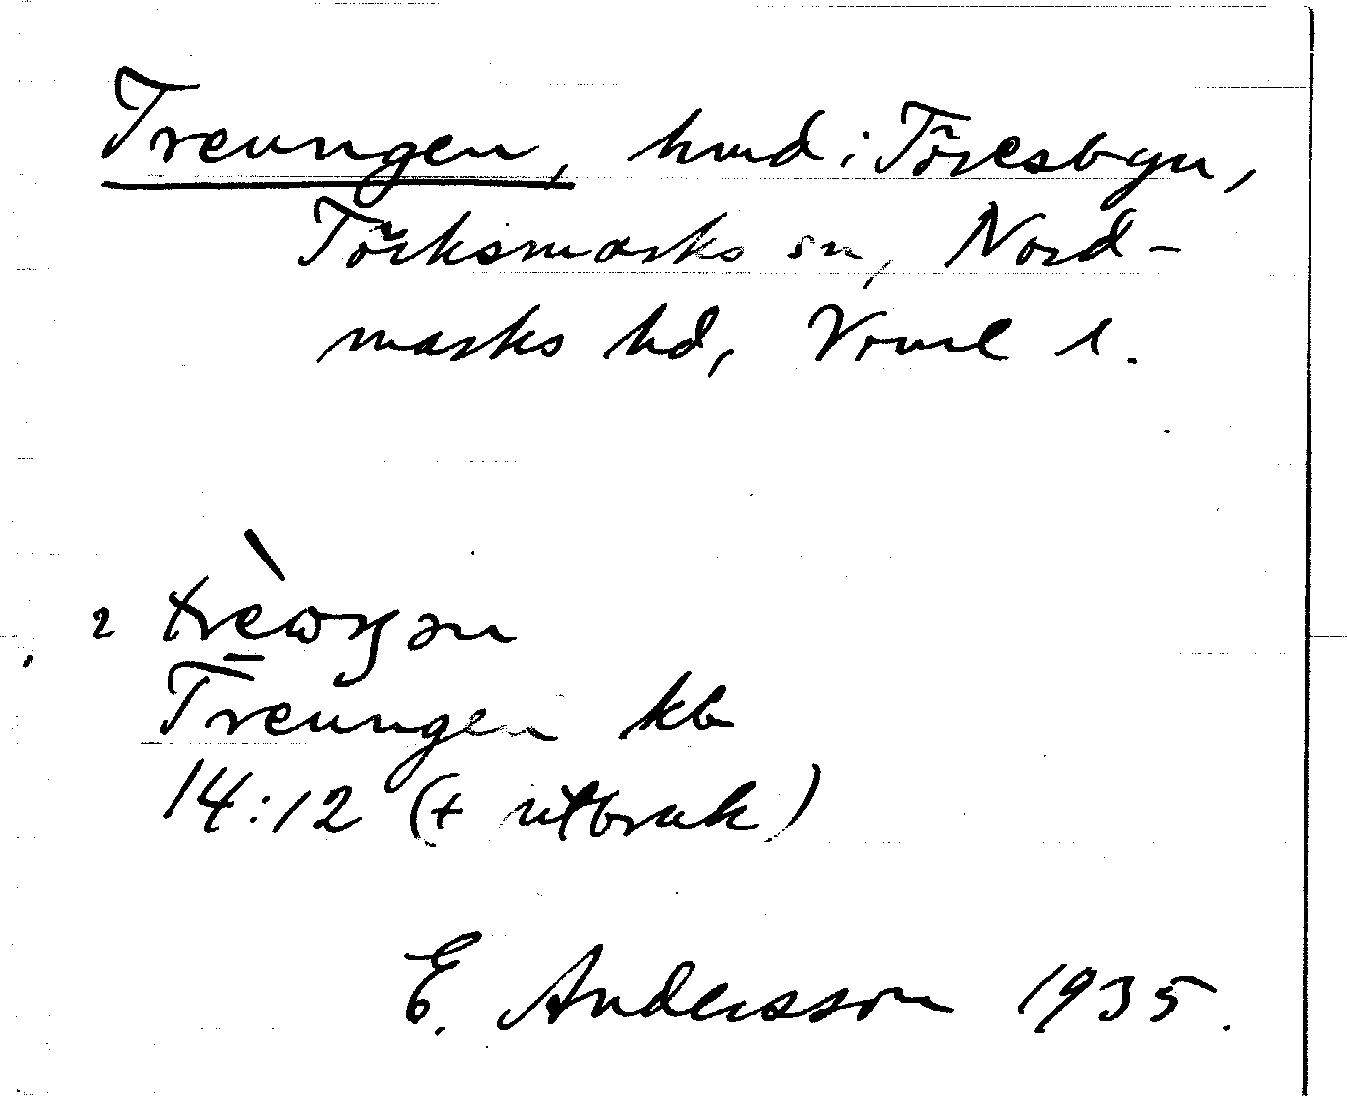 Treungen, hmd i Töresbyn,
Torksmarks sn, Nord-
marks hd, Vrml l.
2 trèwŋən
Treungen kb
14:12 (+ utbruk)
E. Andersson 1935.